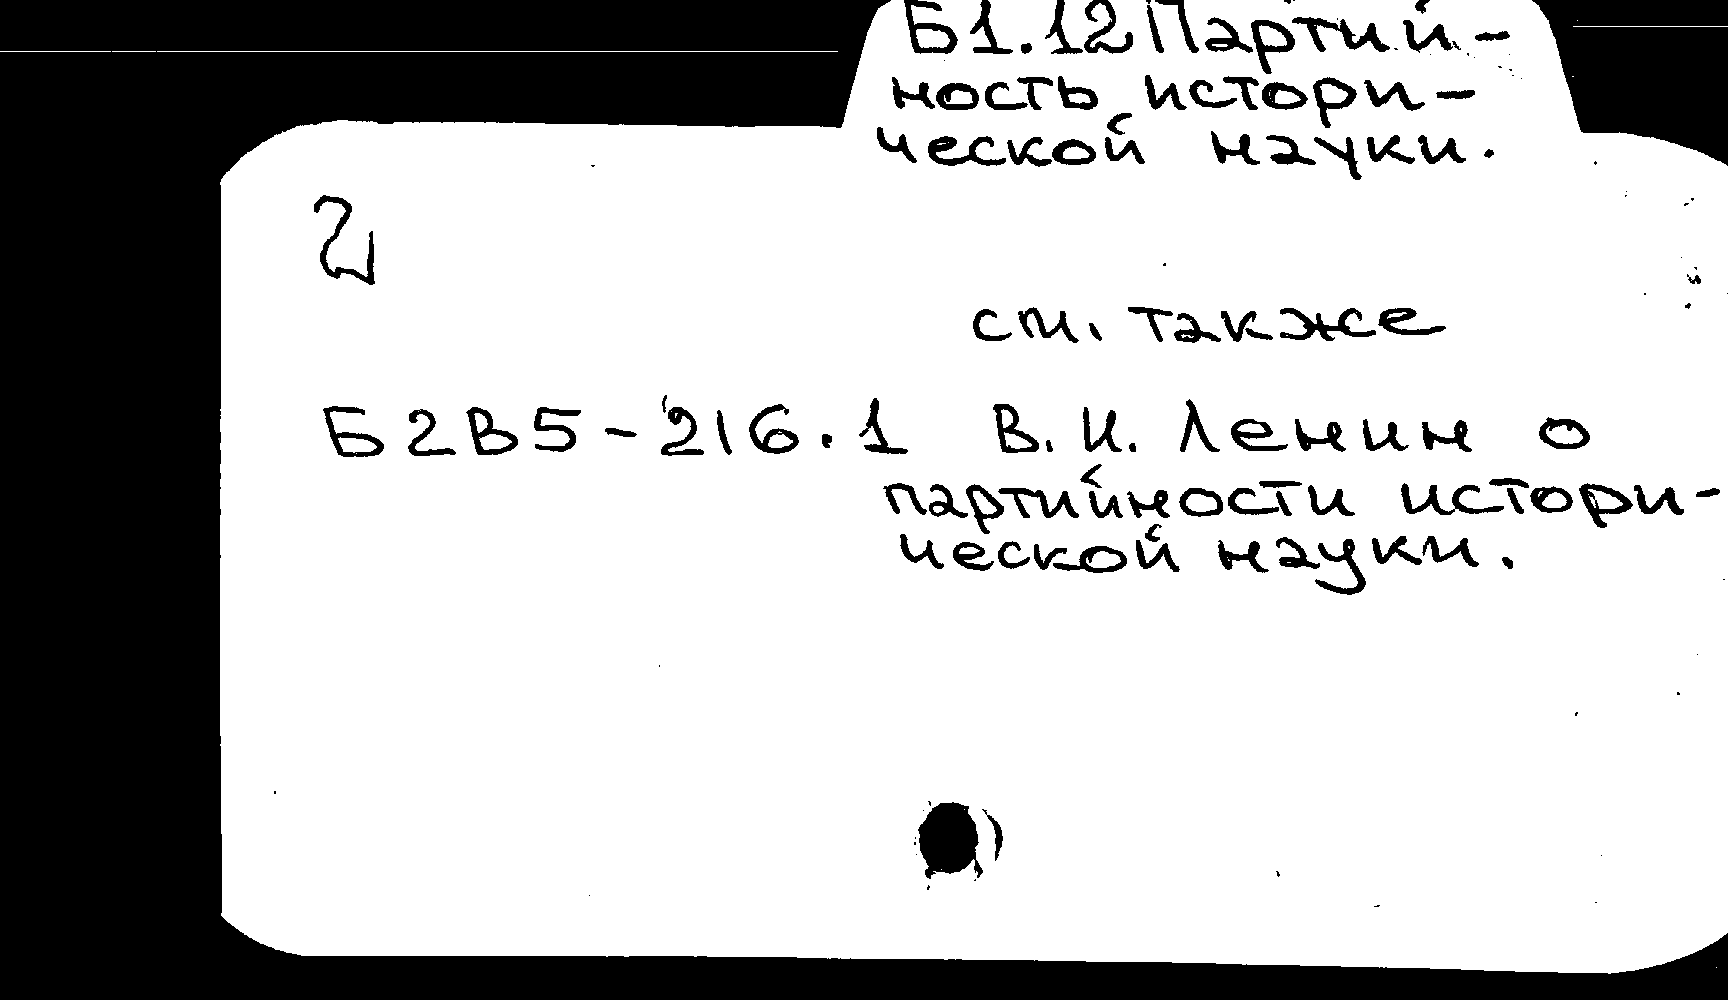 Б1.12 Партий-
ность истори-
ческой науки.
2
см. также
Б2В5-216.1 В.И. Ленин о
партийности истори-
ческой науки.